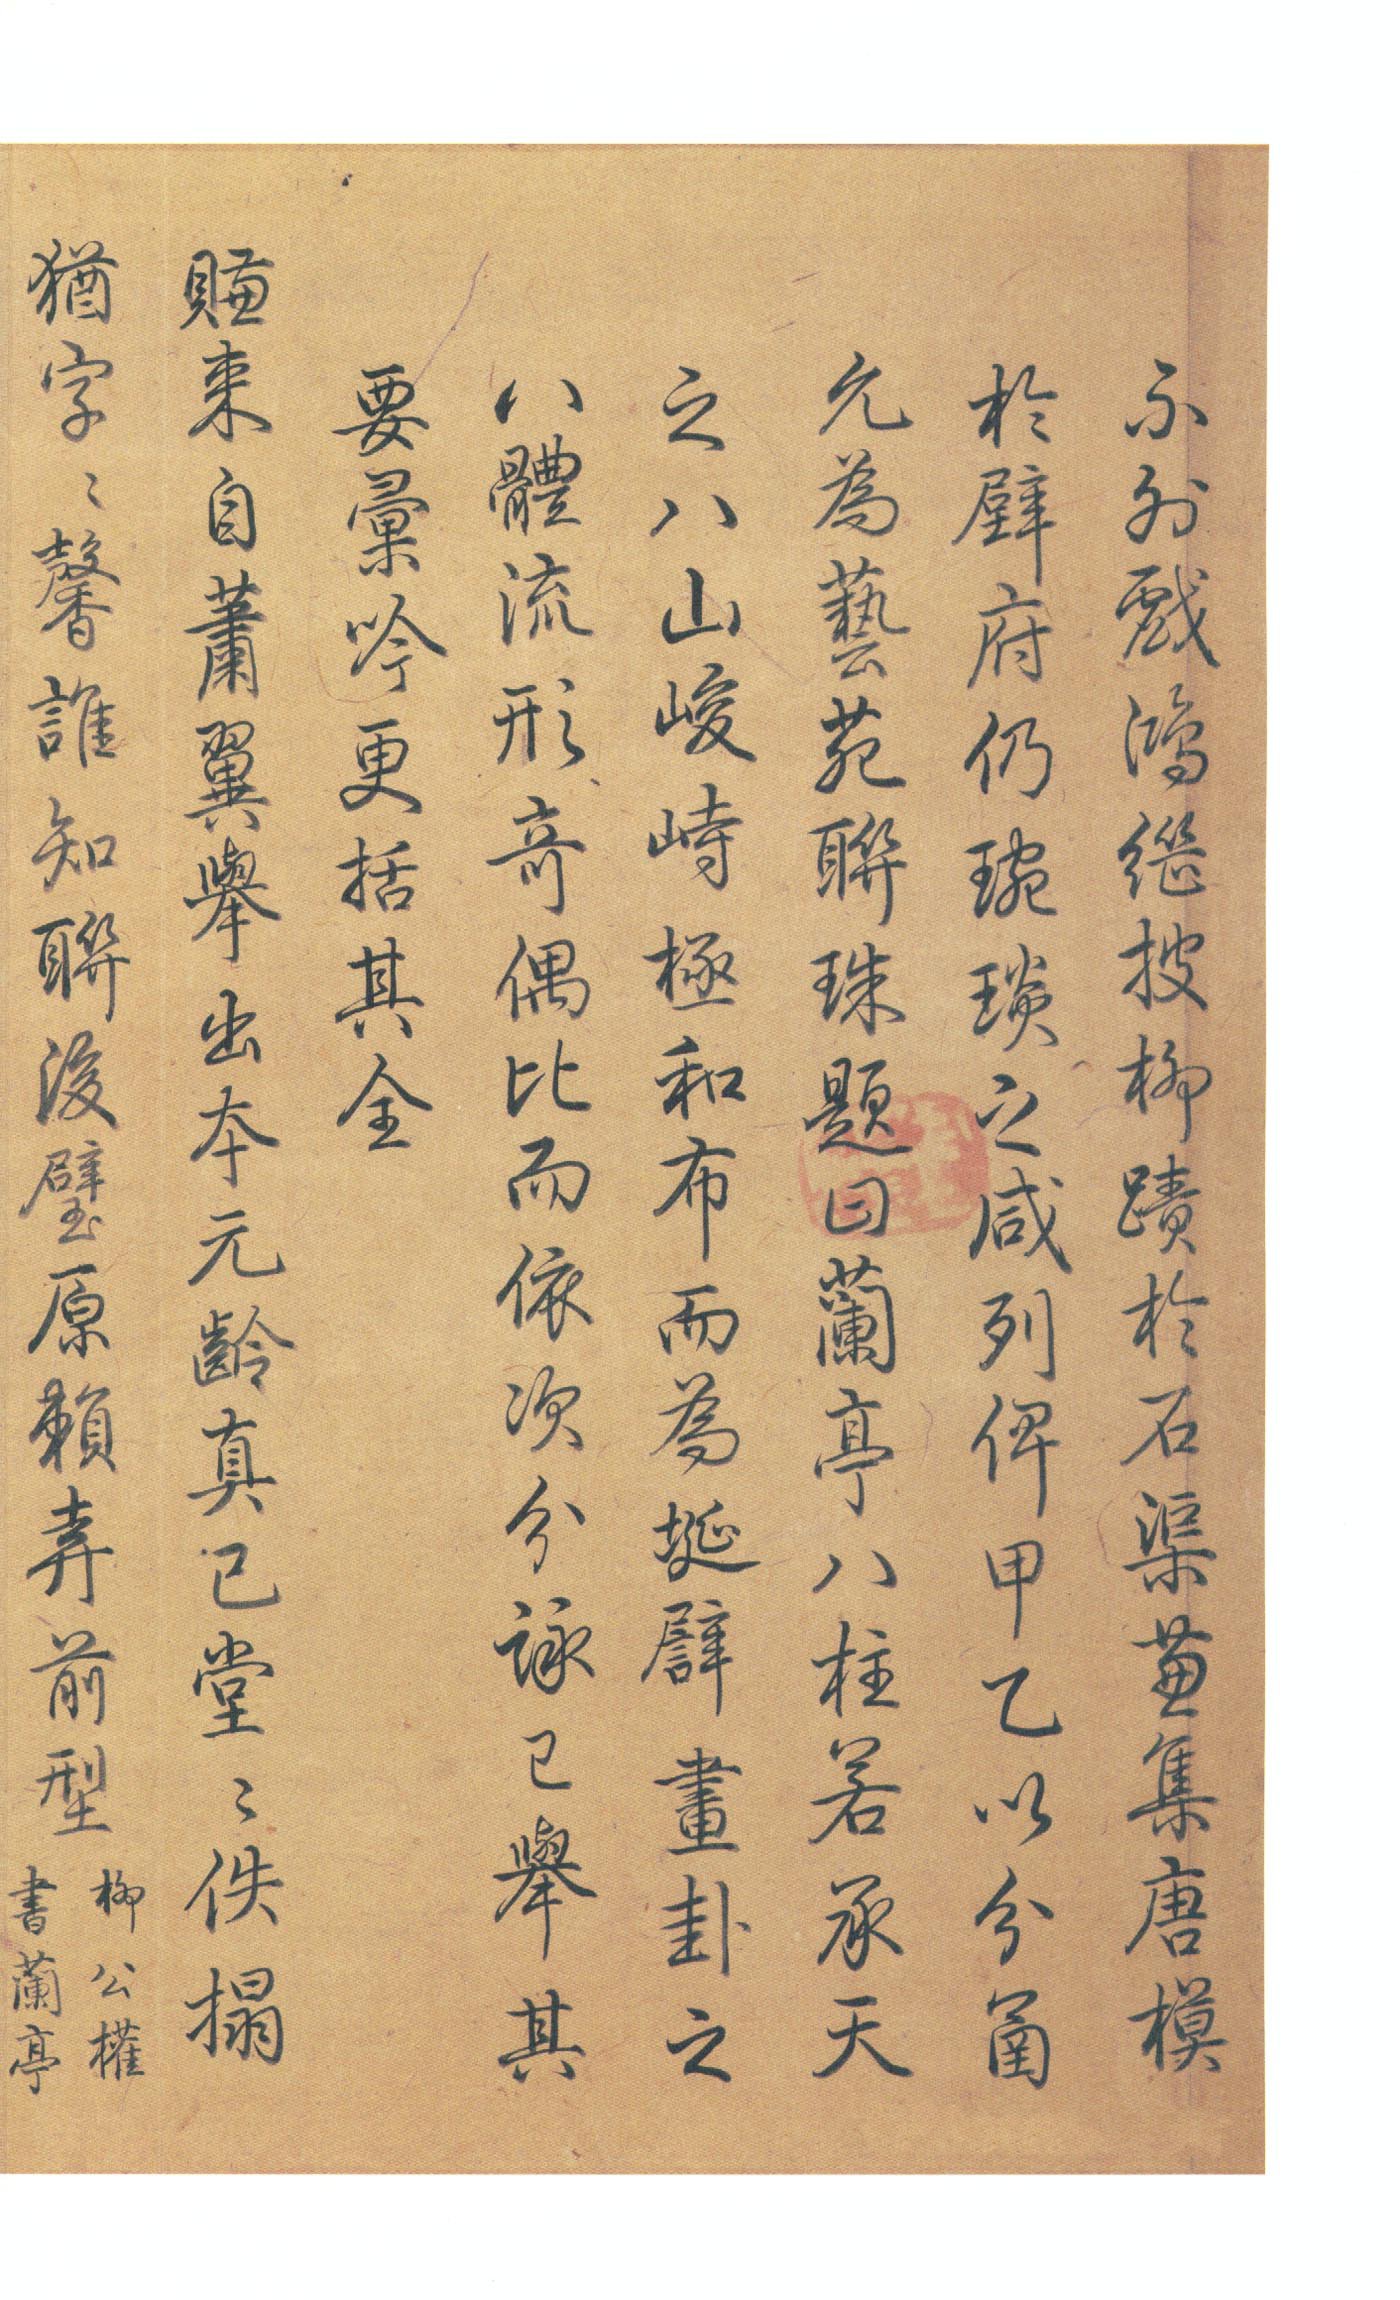 不外戲鴻繼披柳蹟於石渠兼集唐模
於壁府仍琬琰之咸列俾甲乙以分函
允為藝苑聯珠題曰蘭亭八柱若承天
之八山峻峙極和布而為埏譬畫卦之
八體流形奇偶比而依次分詠已舉其
要彙吟更括其全
賺來自蕭翼舉出本元齡真已堂〻佚搨
猶字〻馨誰知聯後璧原賴弆前型
柳公權
書蘭亭